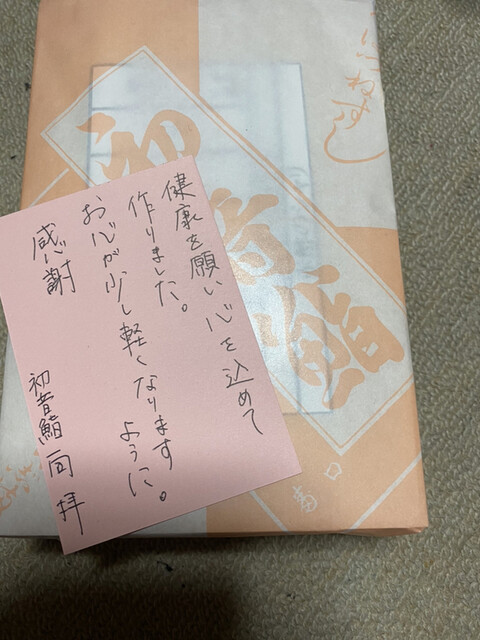 健康を願い心を込めて
作りました。
お心が少し軽くなります
ように。
感謝
初音鮨 同拝
初音鮨